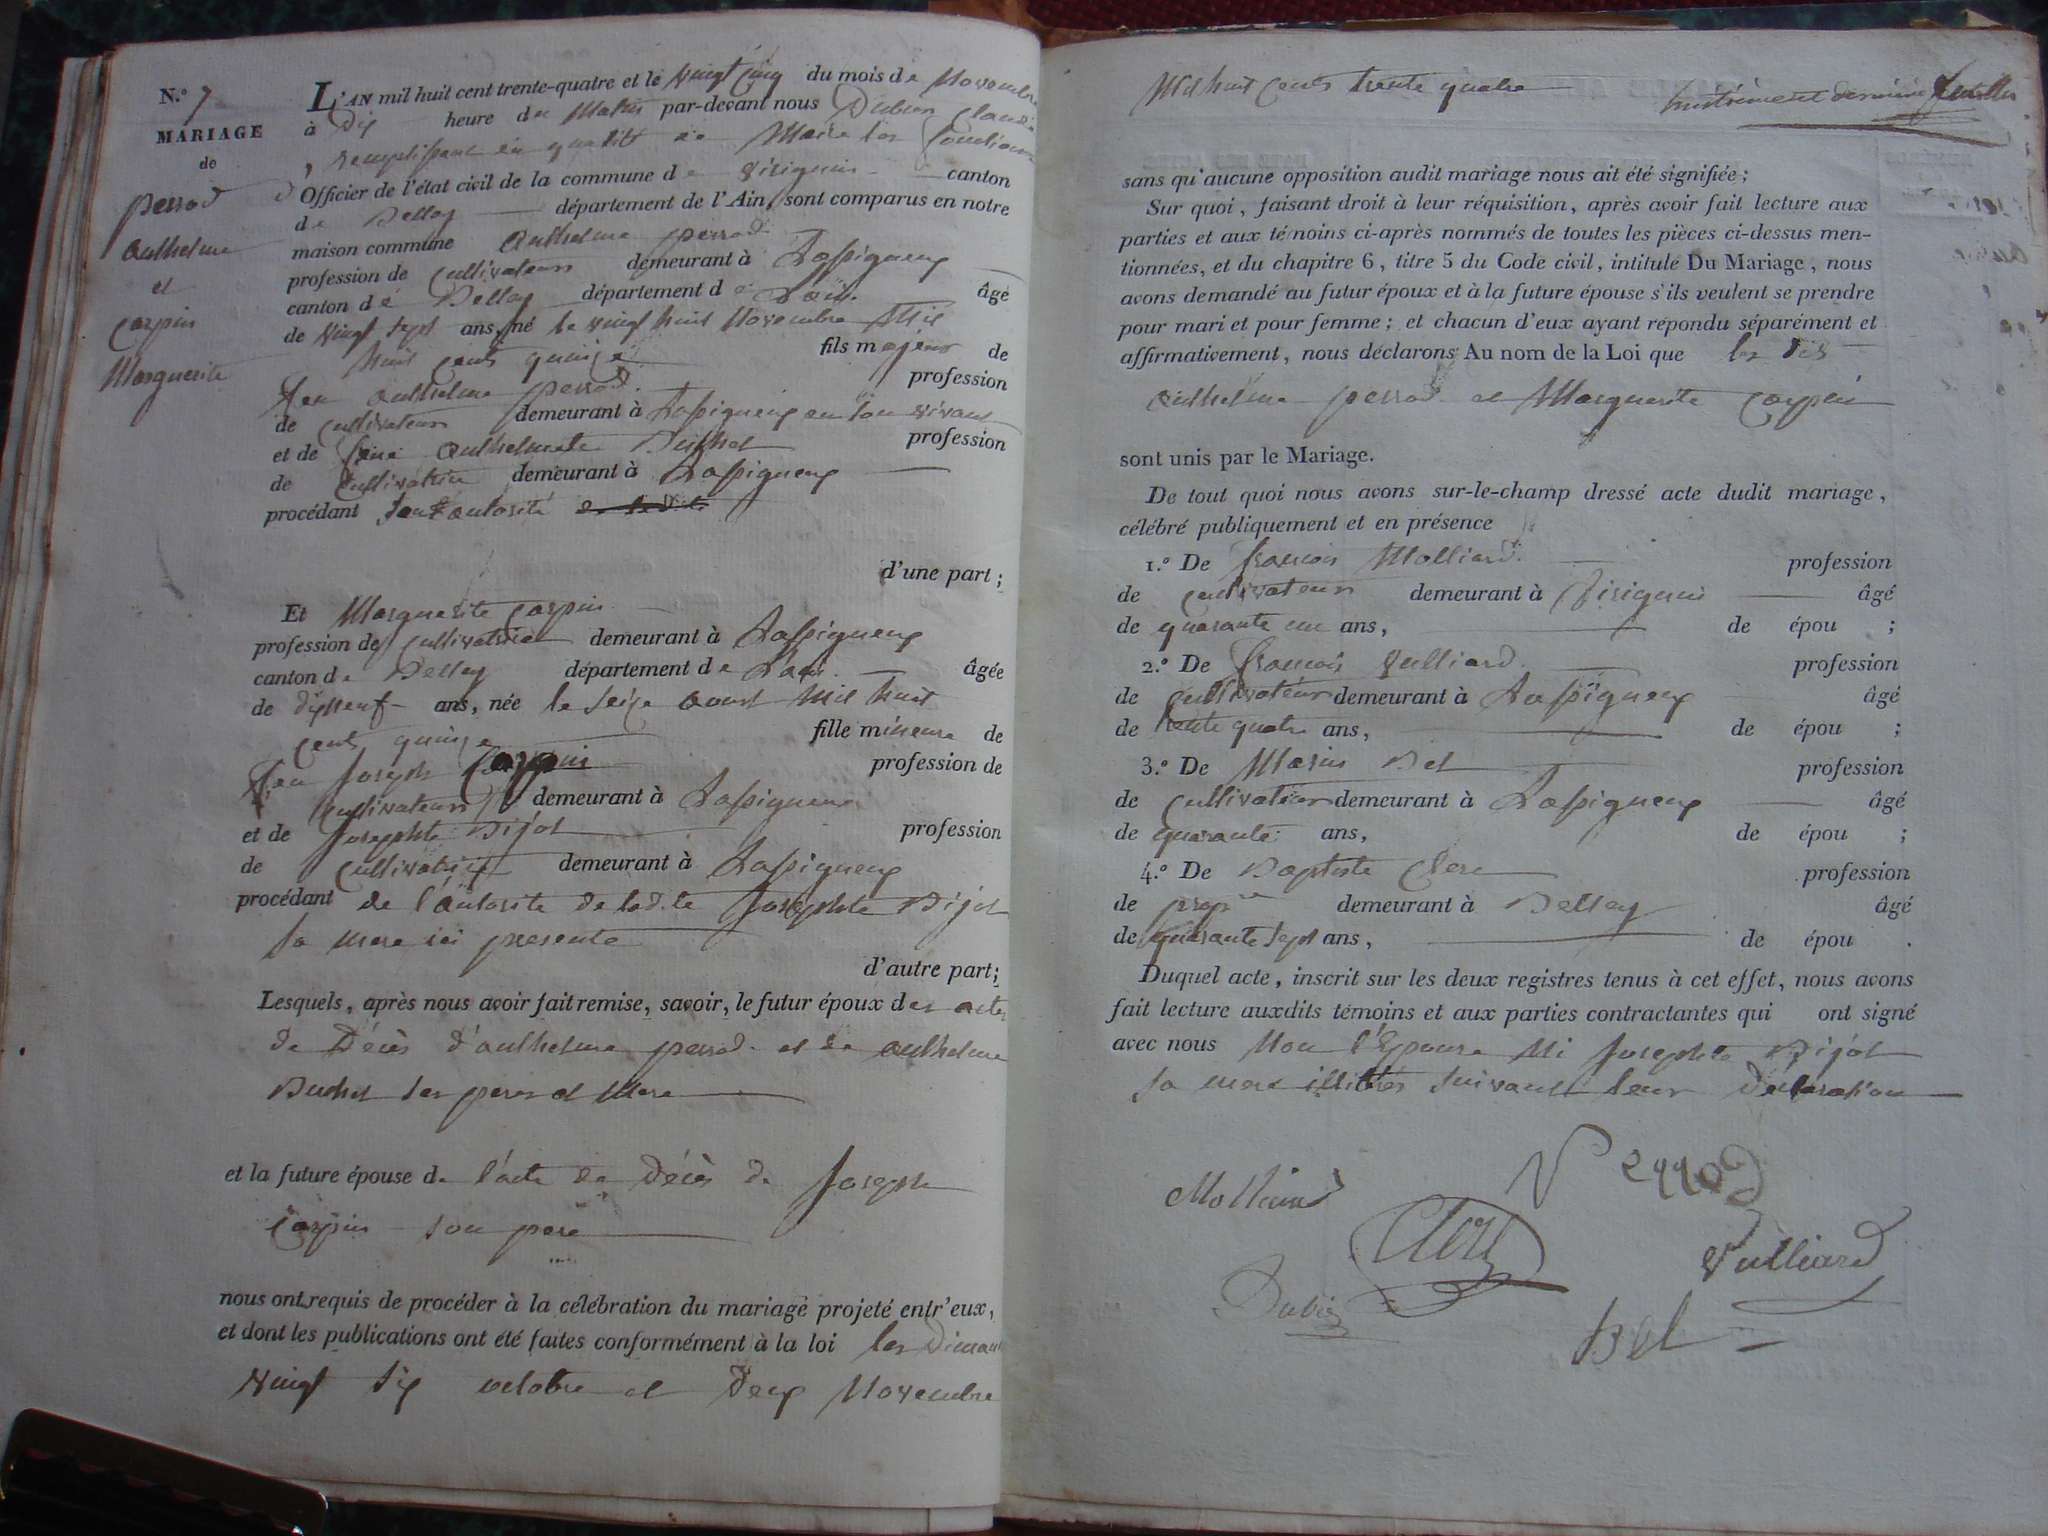 N.º 7
MARIAGE
de
perrod
Anthelme
et
Carpin
Marguerite
L'AN mil huit cent trente-quatre et le vingt Cinq du mois de Novembre
à Dix heure du Matin par-devant nous Dubien Claude
remplissant en qualité de Maire les fonctions
d'Officier de l'état civil de la commune de Virignin canton
de Belley département de l'Ain, sont comparus en notre
maison commune Anthelme perrod
profession de Cultivateur demeurant à Lassignieux
canton de Belley département de L'ain âgé
de vingt sept ans, né le vingt huit Novembre Mil
huit cents quinze fils majeur de
feu Anthelme perrod profession
de Cultivateur demeurant à Lassignieux en son vivant
et de feue Anthelmette Buthet profession
de Cultivatrice demeurant à Lassignieux
procédant sous autorité
d'une part ;
Et Marguerite Carpin
profession de Cultivatrice demeurant à Lassignieux
canton de Belley département de L'ain âgée
de dixneuf ans, née le seize aout Mil huit
cents quinze fille mineure de
feu Joseph Carpin profession de
Cultivateur demeurant à Lassignieux
et de Josephte Dijol profession
de Cultivatrice demeurant à Lassignieux
procédant de l'autorité de ladite Josephte Dijol
sa mere ici presente
d'autre part;
Lesquels, après nous avoir fait remise, savoir, le futur époux des actes
de Décès d'anthelme perrod et de anthelme
Buthet ses peres et Mere
et la future épouse de l'acte de Décès de Joseph
Carpin son pere
nous ont requis de procéder à la célébration du mariage projeté entr'eux,
et dont les publications ont été faites conformément à la loi les Diman
vingt six octobre et Deux Novembre
Mil huit Cents trente quatre
dernier feuillet
sans qu'aucune opposition audit mariage nous ait été signifiée ;
Sur quoi, faisant droit à leur réquisition, après avoir fait lecture aux
parties et aux témoins ci-après nommés de toutes les pièces ci-dessus men-
tionnées, et du chapitre 6, titre 5 du Code civil, intitulé Du Mariage, nous
avons demandé au futur époux et à la future épouse s'ils veulent se prendre
pour mari et pour femme ; et chacun d'eux ayant répondu séparément et
affirmativement, nous déclarons Au nom de la Loi que les dits
Anthelme perrod et Marguerite Carpin
sont unis par le Mariage.
De tout quoi nous avons sur-le-champ dressé acte dudit mariage,
célébré publiquement et en présence
1.º De francois Molliard profession
de Cultivateur demeurant à Virignin âgé
de quarante un ans, de épou ;
2.º De francois Vulliard profession
de Cultivateur demeurant à Lassignieux âgé
de trente quatre ans, de épou ;
3.º De Marin Bel profession
de Cultivateur demeurant à Lassignieux âgé
de quarante ans, de épou ;
4.º De Baptiste Clerc profession
de propre demeurant à Belley âgé
de quarante sept ans, de épou .
Duquel acte, inscrit sur les deux registres tenus à cet effet, nous avons
fait lecture auxdits témoins et aux parties contractantes qui ont signé
avec nous Non l'Epouse Ni Josephte Dijol
sa mere illitrés suivant leur Déclaration
Molliard
Clerc
Vulliard
Bel